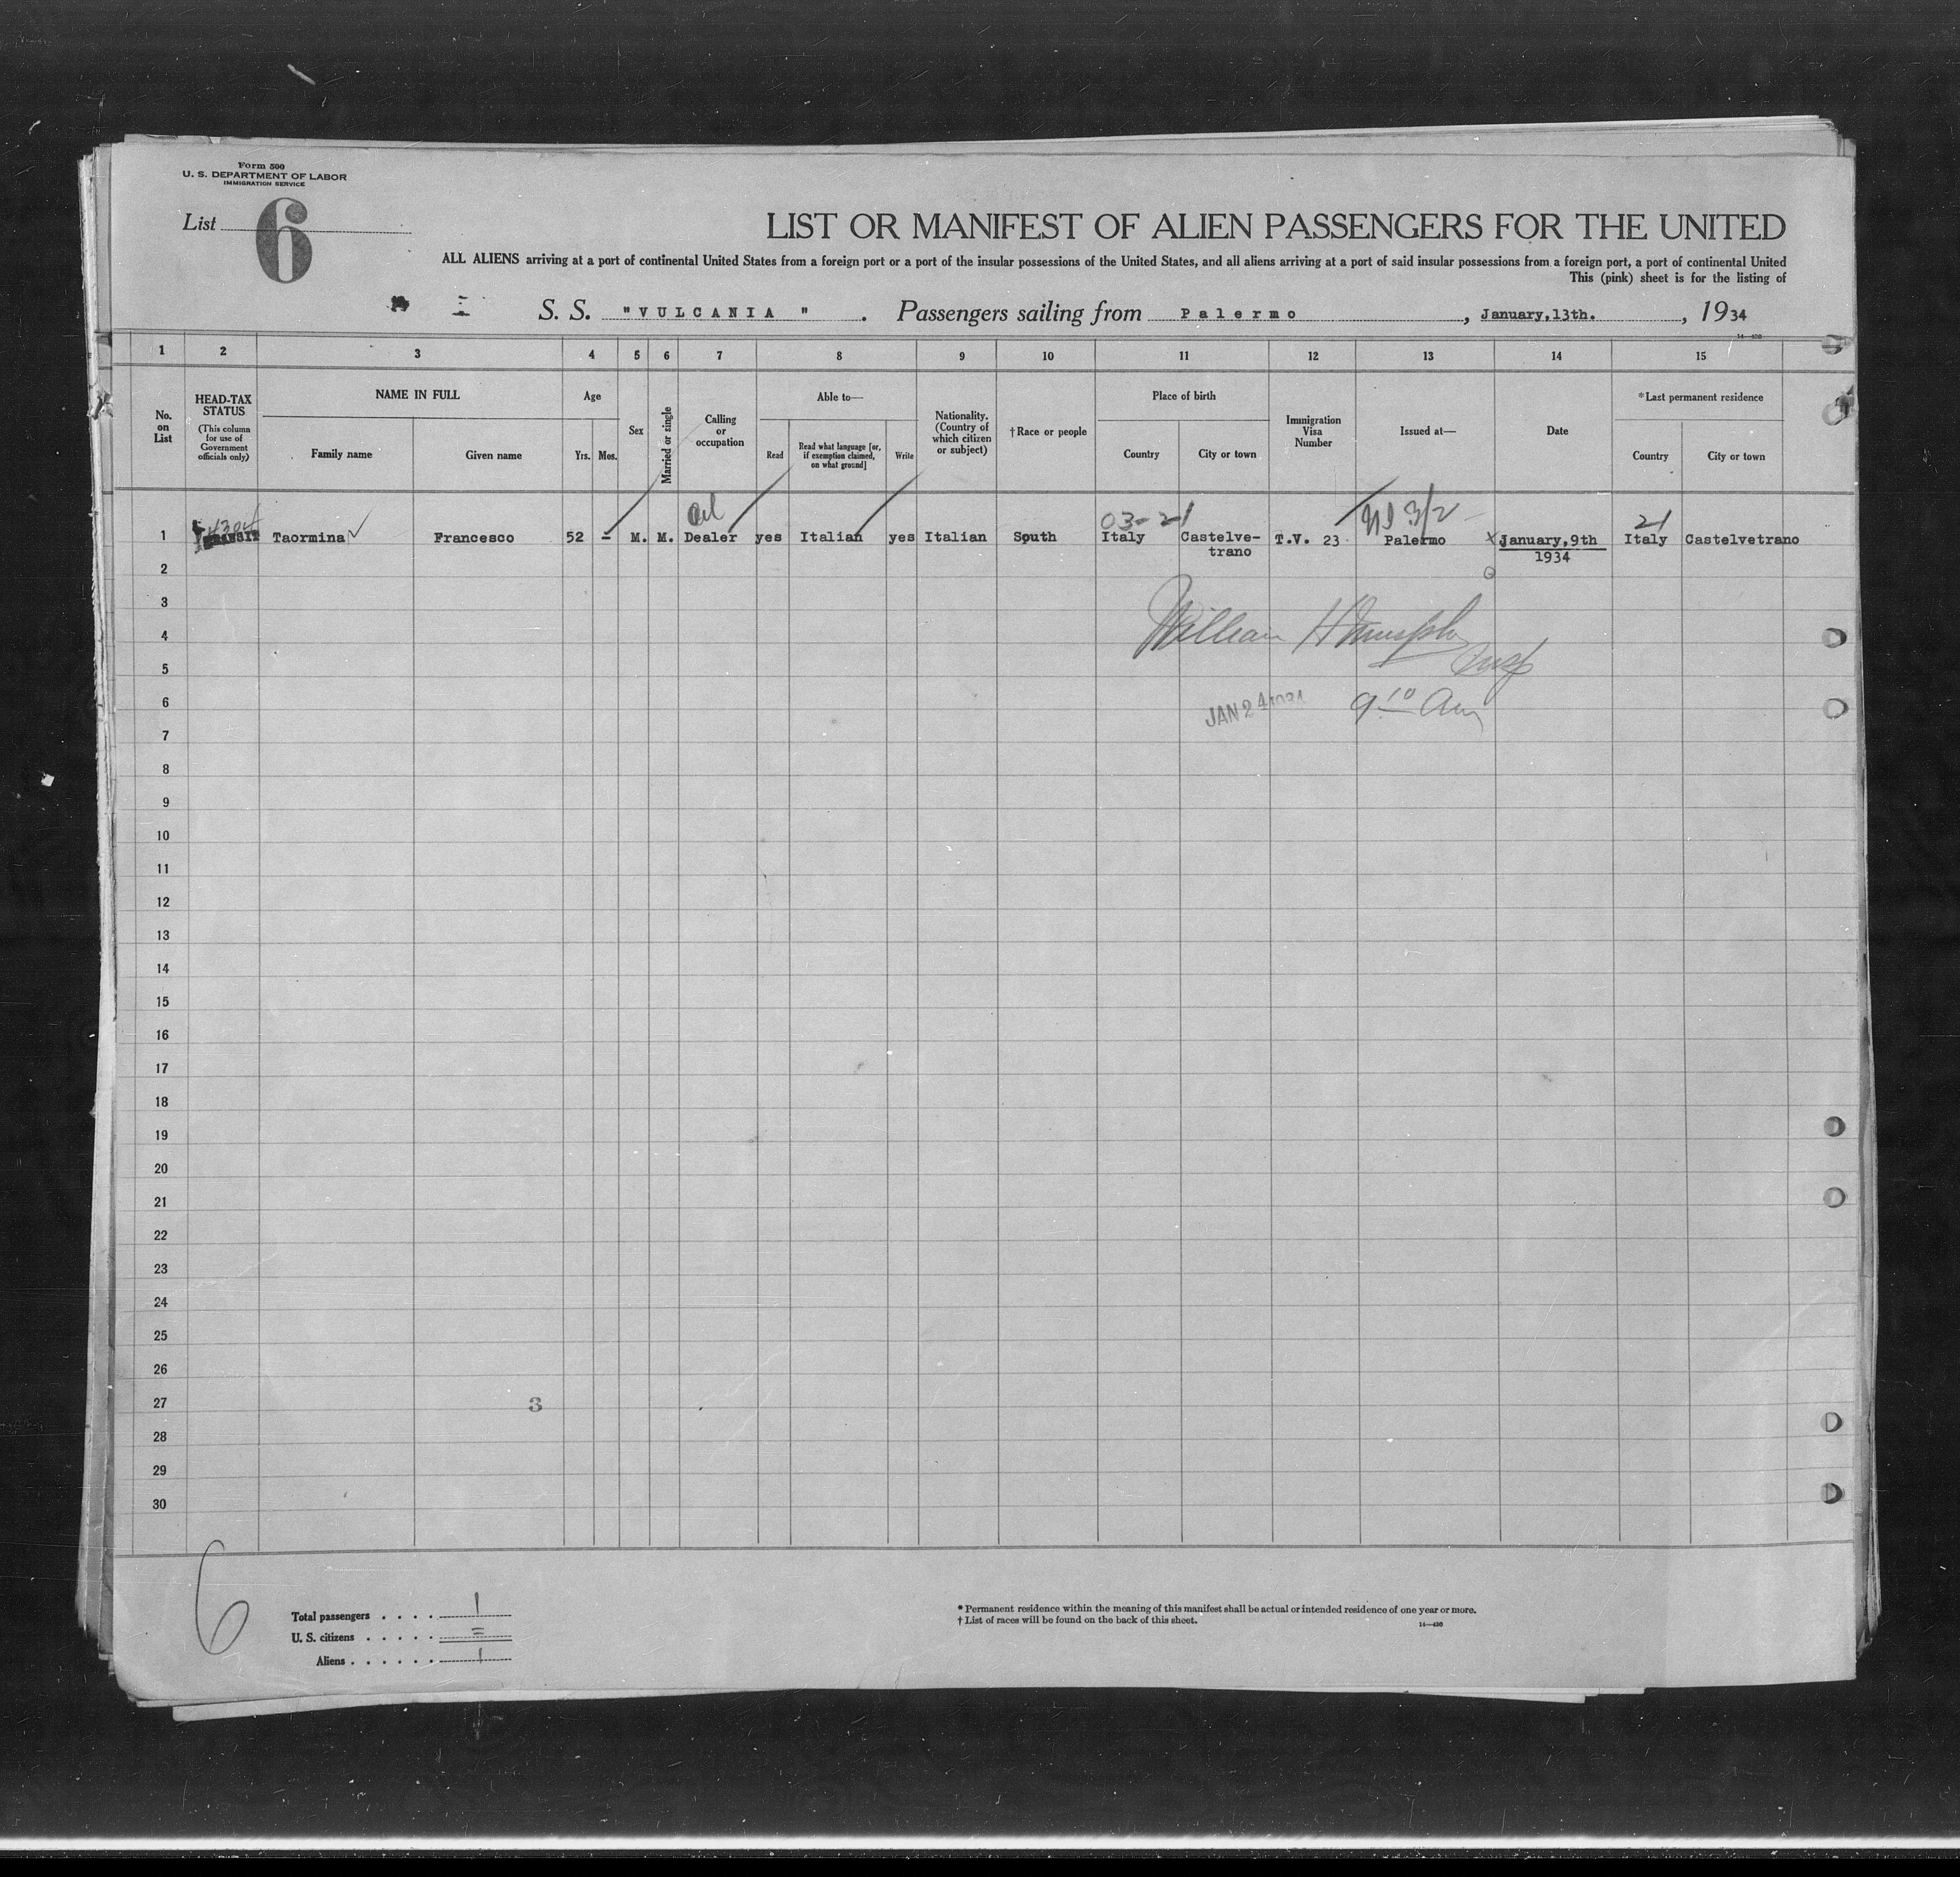 Form 500
U. S. DEPARTMENT OF LABOR
IMMIGRATION SERVICE
List 6
LIST OR MANIFEST OF ALIEN PASSENGERS FOR THE UNITED
ALL ALIENS arriving at a port of continental United States from a foreign port or a port of the insular possessions of the United States, and all aliens arriving at a port of said insular possessions from a foreign port, a port of continental United
This (pink) sheet is for the listing of
S. S. "VULCANIA". Passengers sailing from Palermo, January,13th., 1934
14—430
1 2 3 4 5 6 7 8 9 10 11 12 13 14 15
No. on List
HEAD-TAX STATUS (This column for use of Government officials only)
NAME IN FULL
Family name Given name
Age
Yrs. Mos.
Sex
Married or single
Calling or occupation
Able to—
Read
Read what language [or, if exemption claimed, on what ground]
Write
Nationality. (Country of which citizen or subject)
†Race or people
Place of birth
Country City or town
Immigration Visa Number
Issued at—
Date
*Last permanent residence
Country City or town
03-21 21
1 TRANSIT Taormina Francesco 52 - M. M. Dealer yes Italian yes Italian South Italy Castelve- T.V. 23 Palermo x January,9th Italy Castelvetrano
trano 1934
2
3
4 William H
5 Insp
6 JAN 24 1934 9 10 Am
7
8
9
10
11
12
13
14
15
16
17
18
19
20
21
22
23
24
25
26
27 3
28
29
30
6
Total passengers . . . . 1
U. S. citizens . . . . . =
Aliens . . . . . . 1
* Permanent residence within the meaning of this manifest shall be actual or intended residence of one year or more.
† List of races will be found on the back of this sheet.
14—430